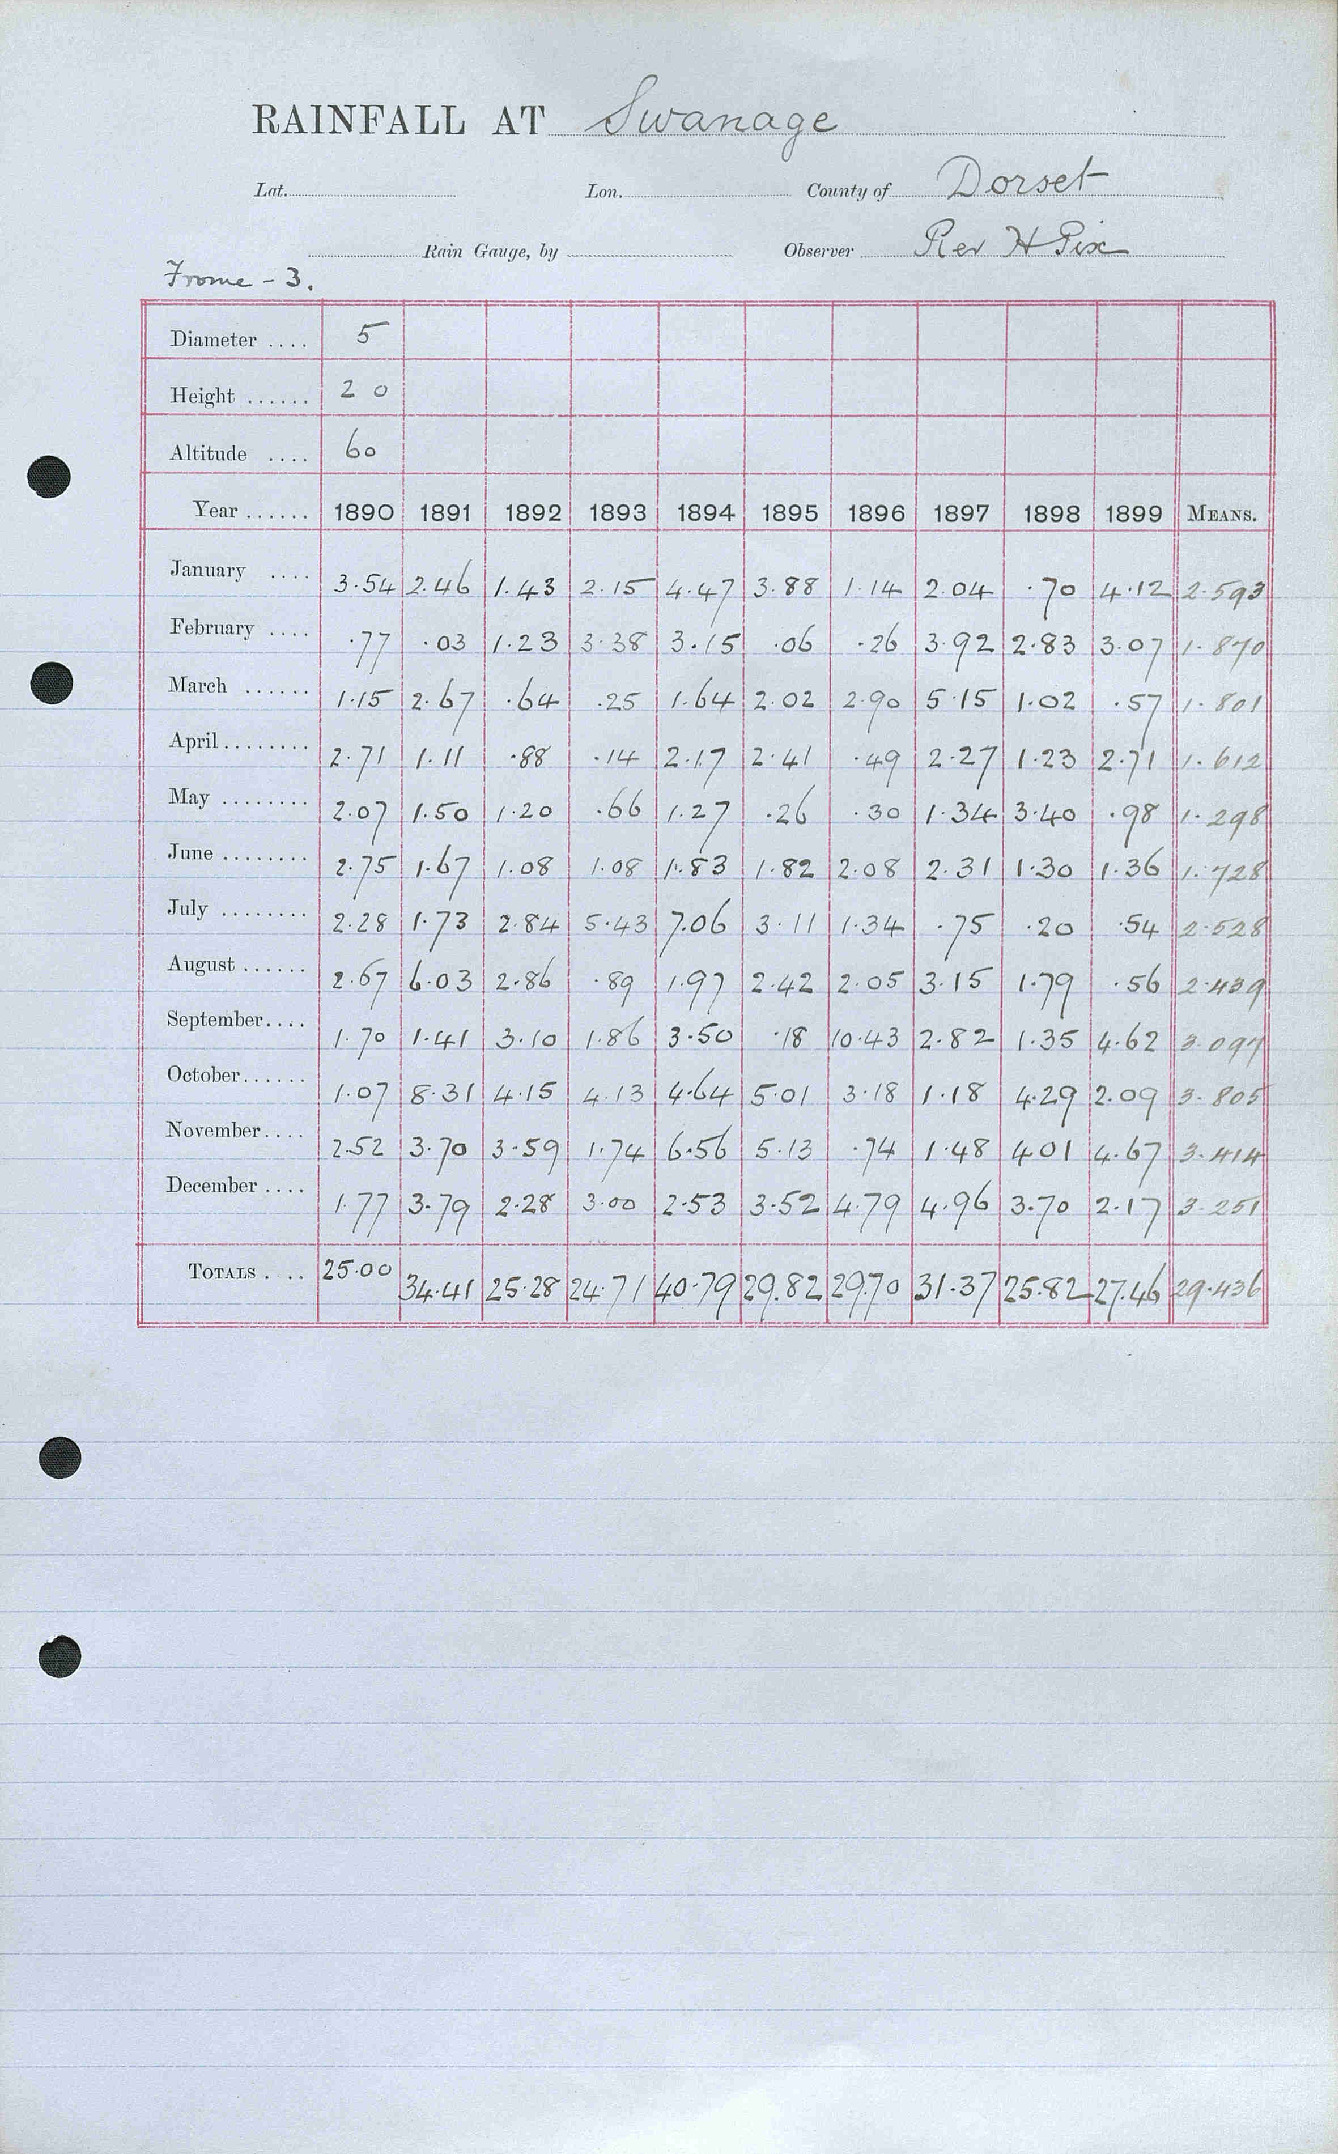 RAINFALL AT Swanage
Lat. Lon. County of Dorset
Rain Gauge, by Observer Rev H Pix
Frome - 3.
Diameter .... 5
Height ...... 2 0
Altitude .... 60
Year ...... 1890 1891 1892 1893 1894 1895 1896 1897 1898 1899 MEANS.
January .... 3.54 2.46 1.43 2.15 4.47 3.88 1.14 2.04 .70 4.12 2.593
February .... .77 .03 1.23 3.38 3.15 .06 .26 3.92 2.83 3.07 1.870
March ...... 1.15 2.67 .64 .25 1.64 2.02 2.90 5.15 1.02 .57 1.801
April ........ 2.71 1.11 .88 .14 2.17 2.41 .49 2.27 1.23 2.71 1.612
May ........ 2.07 1.50 1.20 .66 1.27 .26 .30 1.34 3.40 .98 1.298
June ........ 2.75 1.67 1.08 1.08 1.83 1.82 2.08 2.31 1.30 1.36 1.728
July ........ 2.28 1.73 2.84 5.43 7.06 3.11 1.34 .75 .20 .54 2.528
August ...... 2.67 6.03 2.86 .89 1.97 2.42 2.05 3.15 1.79 .56 2.439
September.... 1.70 1.41 3.10 1.86 3.50 .18 10.43 2.82 1.35 4.62 3.097
October ...... 1.07 8.31 4.15 4.13 4.64 5.01 3.18 1.18 4.29 2.09 3.805
November.... 2.52 3.70 3.59 1.74 6.56 5.13 .74 1.48 4.01 4.67 3.414
December .... 1.77 3.79 2.28 3.00 2.53 3.52 4.79 4.96 3.70 2.17 3.251
TOTALS .... 25.00 34.41 25.28 24.71 40.79 29.82 29.70 31.37 25.82 27.46 29.436